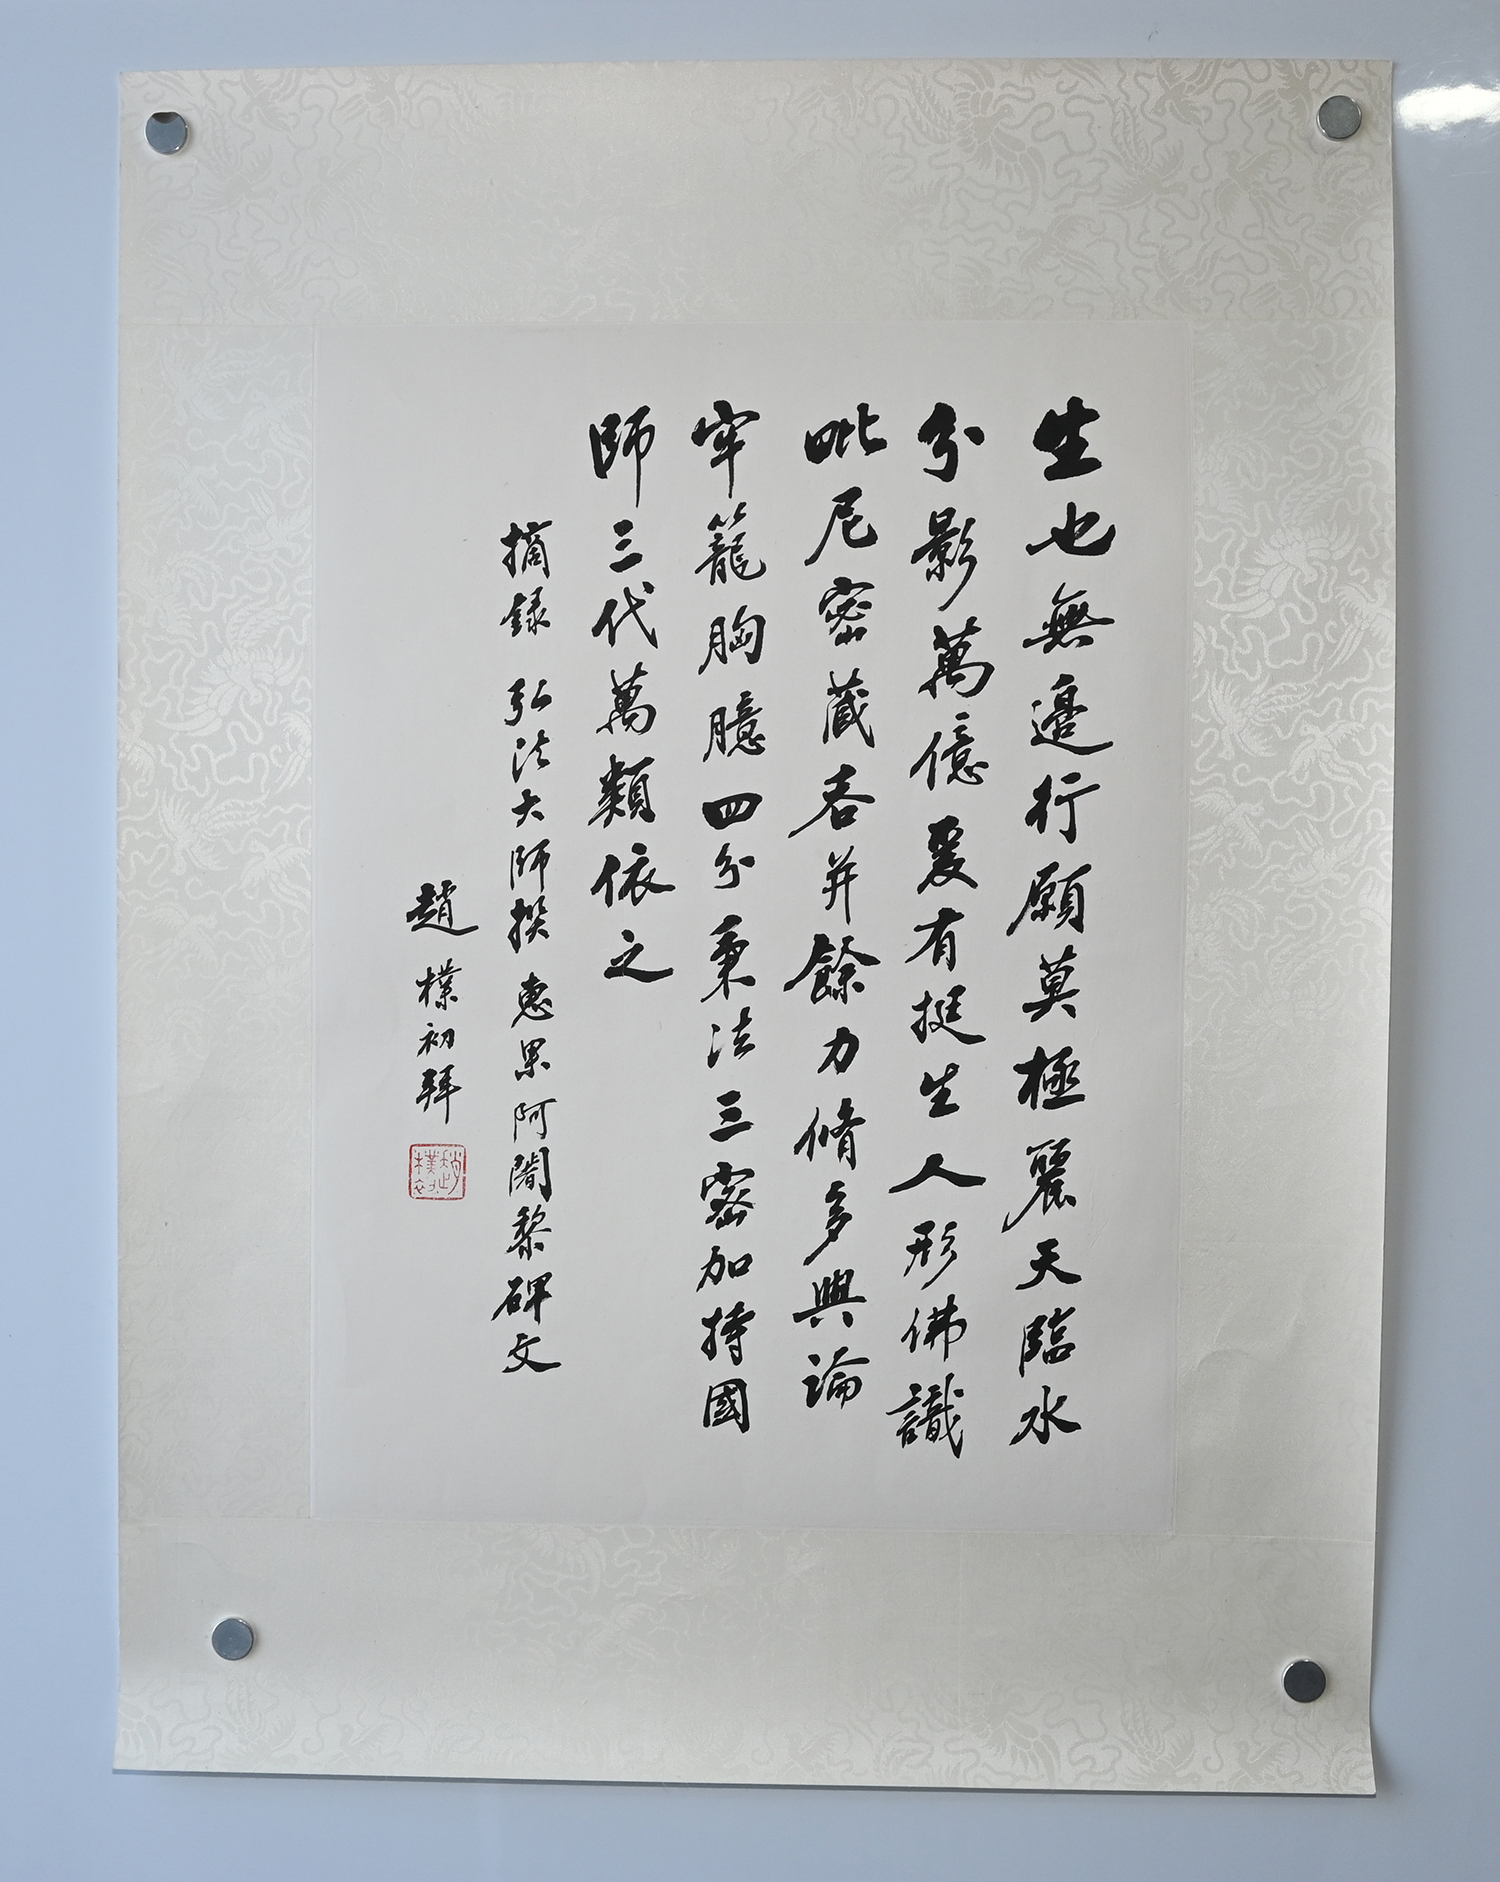 生也無邊行願莫極麗天臨水
分影萬億爰有挺生人形佛識
毗尼密藏吞并餘力脩多與論
牢籠胸臆四分秉法三密加持國
師三代萬類依之
摘録 弘法大師撰惠果阿闍黎碑文
趙樸初拜
趙樸初